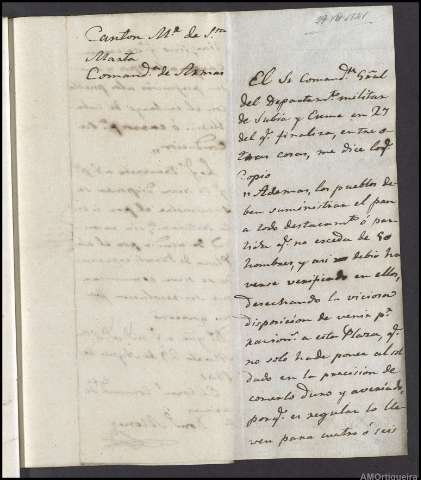 Canton Mr. de Sta
Marta
Comanda. de Armas
El Sr Comandte Gral
del Departamto. militar
de Jubia y Eume en 27
del qe. finaliza, entre o-
tras cosas, me dice loqe.
Copio
" Ademas, los pueblos de-
ben suministrar el pan
a todo destacamto. ó par-
tida qe. no esceda de 50
hombres, y asi debio ha-
verse verificado en ellos,
desechando la viciosa
disposicion de venir pr.
raciones a esta Plaza, qe.
no solo hade poner al sol-
dado en la precision de
comerlo duro y averiado,
porqe. es regular lo lle-
ven para cuatro ó seis
AMOrtigueira